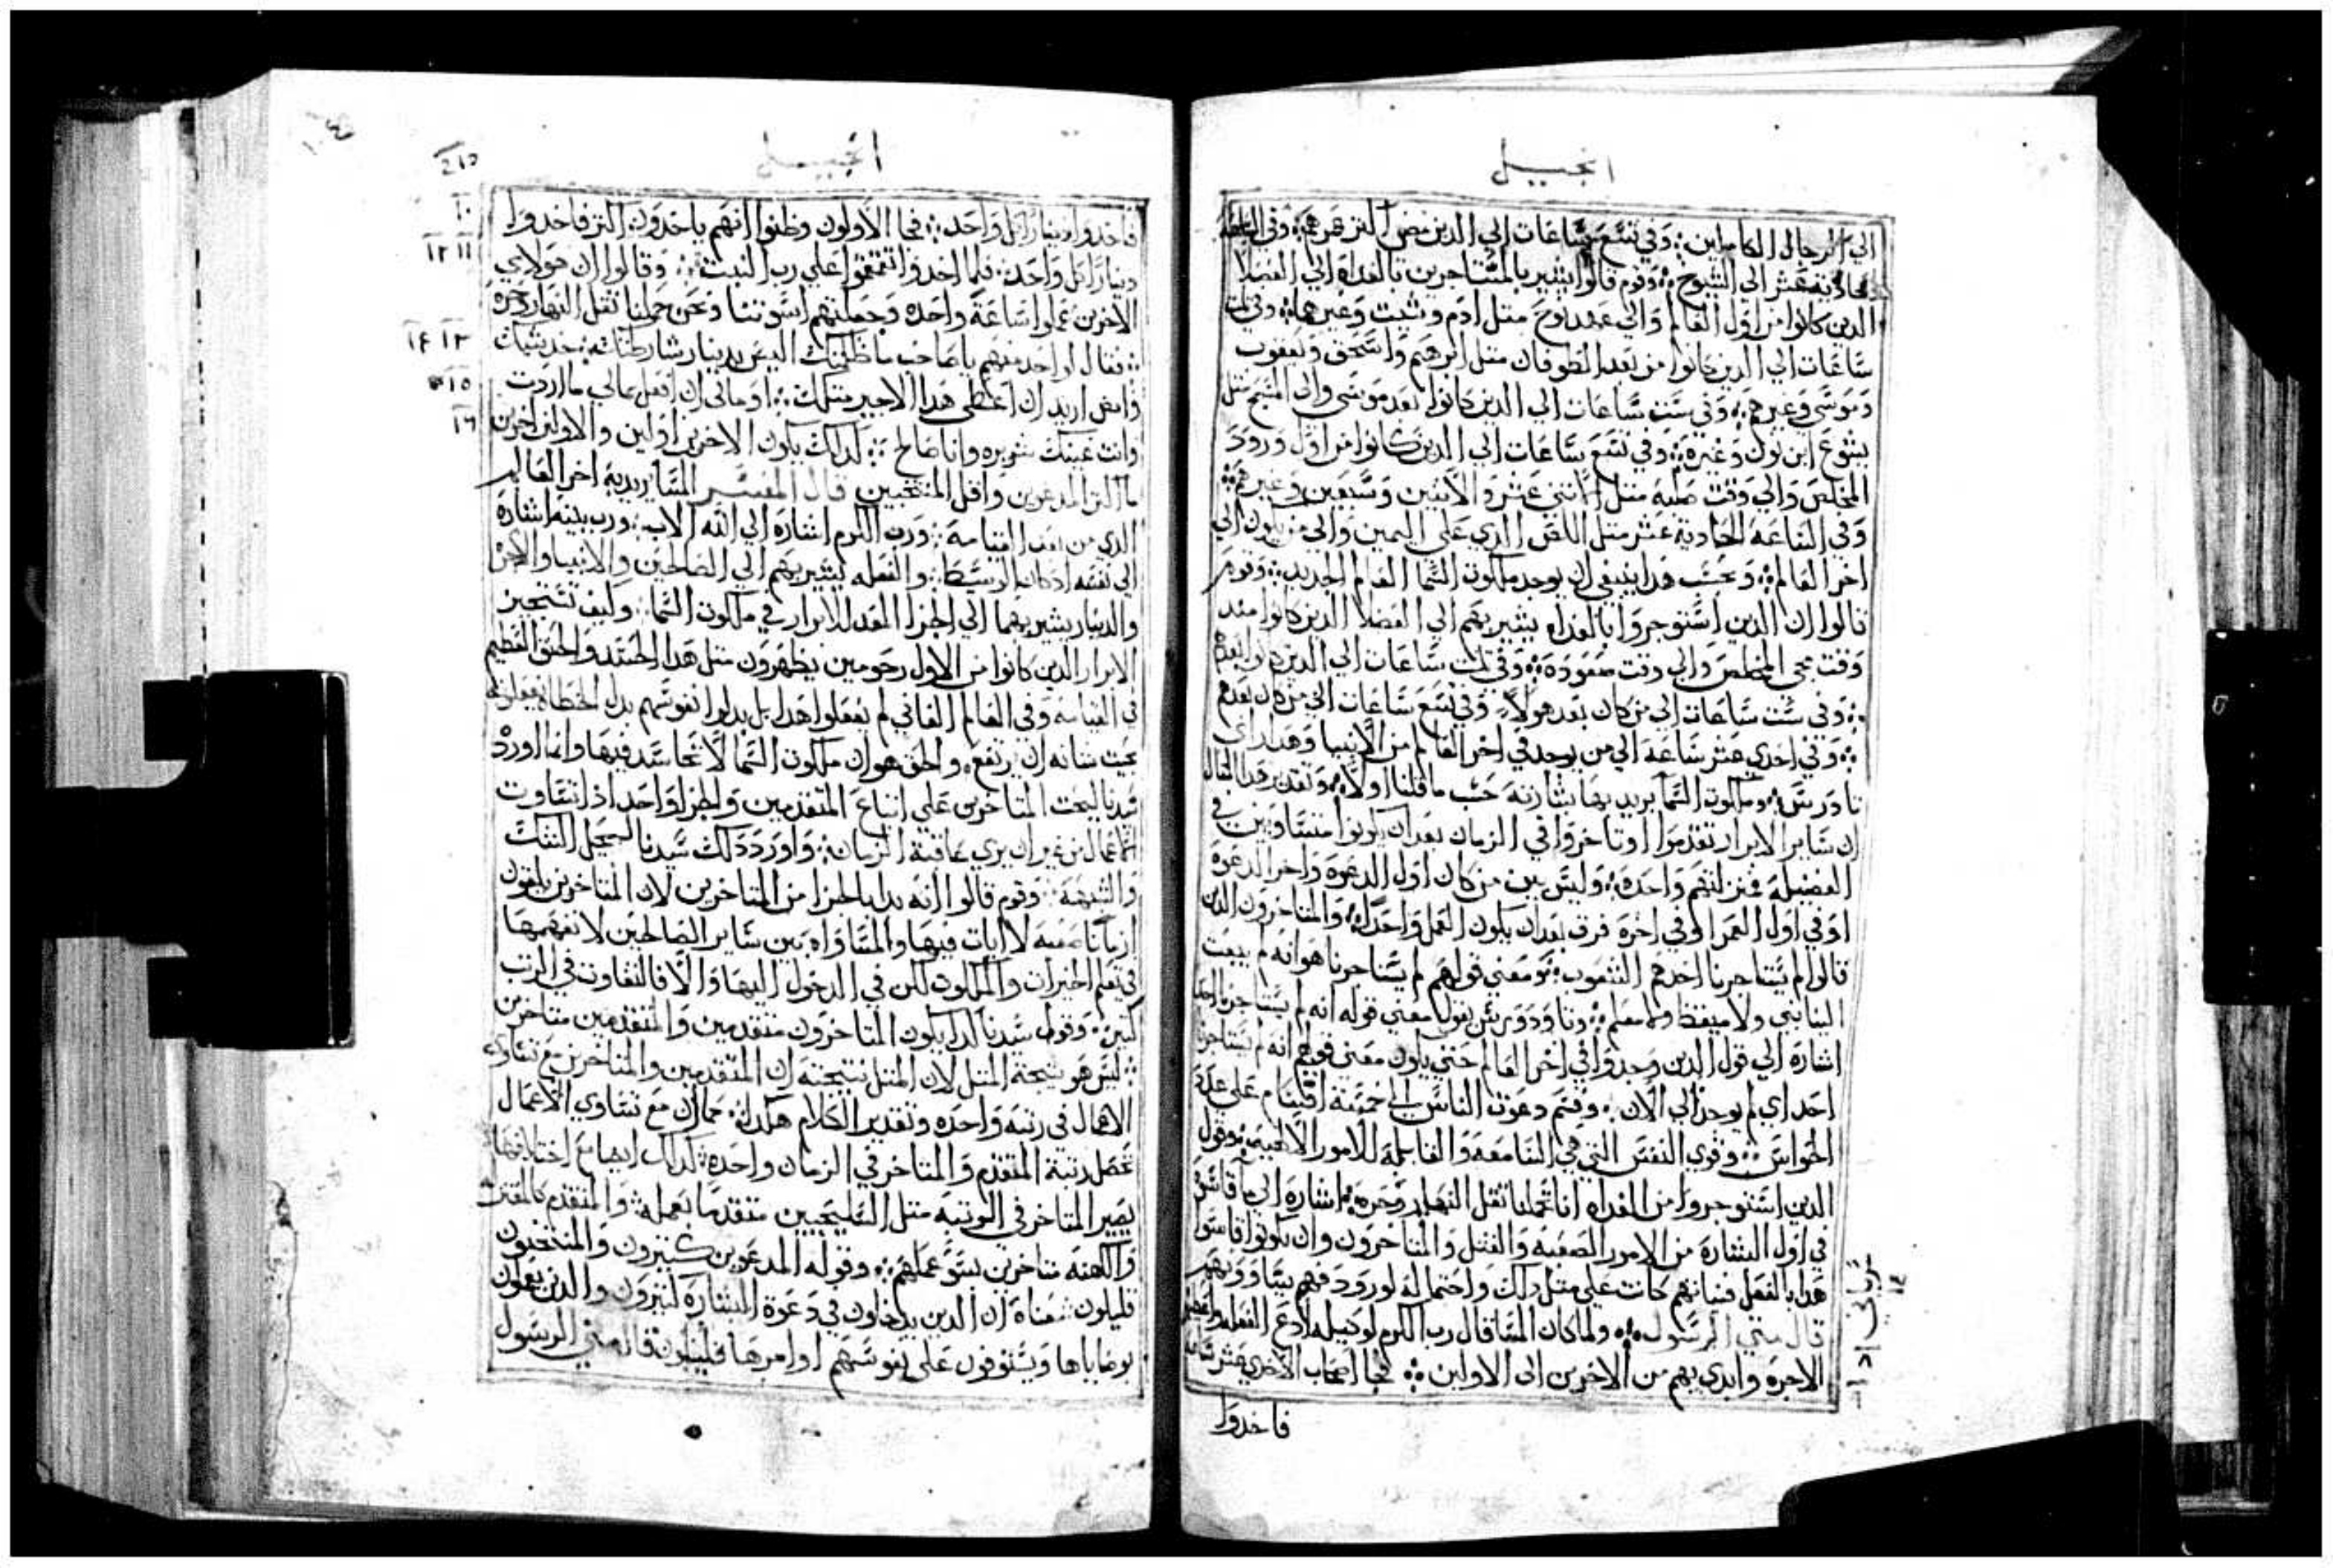 انجيــل
الي الرجال الكاملين؞ وفي تسع ساعات الي الدين نقص اكتر عمرهم؞ وفي الساعة
الحادية عشر الي الشيوخ؞ وقوم قالوا يشير بالمستاجرين بالغداه الي الفضلا
الدين كانوا من اول العالم والي عهد نوح متل ادم وشيت وغيرهما؞ وفي تلت
ساعات الي الدين كانوا من بعد الطوفان متل ابرهيم واسحق ويعقوب
وموسى وغيرهم؞ وفي ست ساعات الي الدين كانوا بعد موسى والى المسيح متل
يشوع ابن نون وغيره؞ وفي تسع ساعات الي الدين كانوا من اول ورود
المخلص والي وقت صلبه متل الاتني عشر والاتنين وسبعين وغيرهم؞
وفي الساعة الحادية عشر متل اللص الدي على اليمين والي من يكون الي
اخر العالم؞ وبحسب هدا ينبغي ان يوجد ملكوت السما العالم الجديد؞ وقوم
قالوا ان الدين استوجروا بالغداه يشير بهم الي الفضلا الدين كانوا مند
وقت مجى المخلص والي وقت صعوده؞ وفي تلت ساعات الي الدين كانوا بعدهم
؞ وفي ست ساعات الي من كان بعد هولاء؞ وفي تسع ساعات الي من كان بعدهم
؞ وفي احدي عشر ساعة الي من يوجد في اخر العالم من الانبيا وهدا راي
تاودرس؞ وملكوت السما يريد بها بشارته حسب ما قلنا اولا؞ وتقدير هدا المتال
ان ساير الابرار تقدموا او تاخروا في الزمان بعد ان يكونوا متساويين في
الفضيلة فمنزلتهم واحده؞ وليس بين من كان اول الدعوة واخر الدعوة
او في اول العمر او في اخره فرق بعد ان يكون العمل واحدا؞ والمتاخرون الدين
قالوا لم يستاجرنا احد هم الشعوب؞ ومعنى قولهم لم يستاجرنا هو انه لم يبعت
الينا نبي ولا ميقظ ولا معلم؞ وتاودورس يقول معني قوله انه لم يستاجرنا احد
اشارة الي قول الدين وجدوا في اخر العالم حتي يكون معني قولهم انه لم يستاجرنا
احد اي لم يوجد الي الان؞ وقسم دعوت الناس الى خمسة اقسام على عدة
الحواس؞ وقوي النفس التي هي السامعة والقابلة للامور الالهية؞ وقول
الدين استوجروا من الغداه انا تحملنا تقل النهار وحره؞ اشارة الى ما قاسوه
في اول البشارة من الامور الصعبه والقتل والمتاخرون وان يكونوا قاسوا
هدا بالفعل فنياتهم كانت علي متل دلك واحتماله لو ورد فهم يتساوونهم
قال متي الرسول؞ ولما كان المسا قال رب الكرم لوكيله ادع الفعله واعطهم
الاجرة وابدي بهم من الاخرين الى الاولين؞ فجا اصحاب الاحدي عشر ساعة
فاخدوا
٨
انجيــل
فاخدوا دينارا كل واحد؞ فجا الاولون وظنوا انهم ياخدون اكتر فاخدوا
دينارا كل واحد؞ فلما اخدوا تقمقموا علي رب البيت؞ وقالوا ان هولاي
الاخرين عملوا ساعة واحده وجعلتهم اسوتنا ونحن حملنا تقل النهار وحره
؞ فقال لواحد منهم يا صاحب ما ظلمتك اليس بدينار شارطتك؞ خد شيك
وامض اريد ان اعطي هدا الاجير متلك؞ او مالى ان افعل بمالي ما اردت
وانت عينك شريره وانا صالح؞ كدلك يكون الاخرين اولين والاولين اخرين
ما اكتر المدعوين واقل المنتجبين قال المفسر المسا يريد به اخر العالم
الدي من بعد القيامه؞ ورب الكرم اشارة الي الله الاب؞ ورب بيته اشارة
الي نفسه اد كان الوسيط؞ والفعله يشير بهم الي الصالحين والانبيا والاجره
والدينار يشير بهما الي الجزا المعد للابرار في ملكوت السما؞ وكيف تستجيز
الابرار الدين كانوا من الاول رحومين يظهرون متل هدا الحسد والحنق العظيم
في القيامه وفي العالم الفاني لم يفعلوا هدا بل بدلوا نفوسهم بدل الخطاه
بحيت شانه ان يرتفع؞ والحق هو ان ملكوت السما لا تحاسد فيها وانما اورد
سيدنا ليحت المتاخرين علي اتباع المتقدمين والجزا واحد اذا تساوت
الاعمال من غير ان يري عاقبة الزمان؞ واورد دلك سيدنا ليحل الشك
والشبهة؞ وقوم قالوا انه بدا بالجزا من المتاخرين لان المتاخرين يلقون
ازمانا صعبه لا ايات فيها والمساواه بين ساير الصالحين لا نفهمها
في نعيم الخيرات والملكوت لكن في الدخول اليها والا فالتفاوت في الرتب
كتير؞ وقول سيدنا كدا يكون المتاخرون متقدمين والمتقدمين متاخرين
؞ ليس هو نتيجة المتل لان المتل نتيجته ان المتقدمين والمتاخرين مع تساوي
الاعمال في رتبه واحده وتقدير الكلام هكدا؞ كما ان مع تساوي الاعمال
تحصل رتبة المتقدم والمتاخر في الزمان واحده؞ كدلك ايضا مع اختلافها
يصير المتاخر في الرتبه متل السليحيين متقدما بعمله؞ والمتقدم كالمعتزله
والكهنه متاخرين بسو عملهم؞ وقوله المدعوين كتيرون والمنتخبون
قليلون معناه ان الدين يدخلون في دعوة البشارة كتيرون والدين يعملون
بوصاياها ويستوفون على نفوسهم اوامرها قليلون قال متي الرسول
١٠
١١ ١٢
١٣ ١٤
١٥
١٦